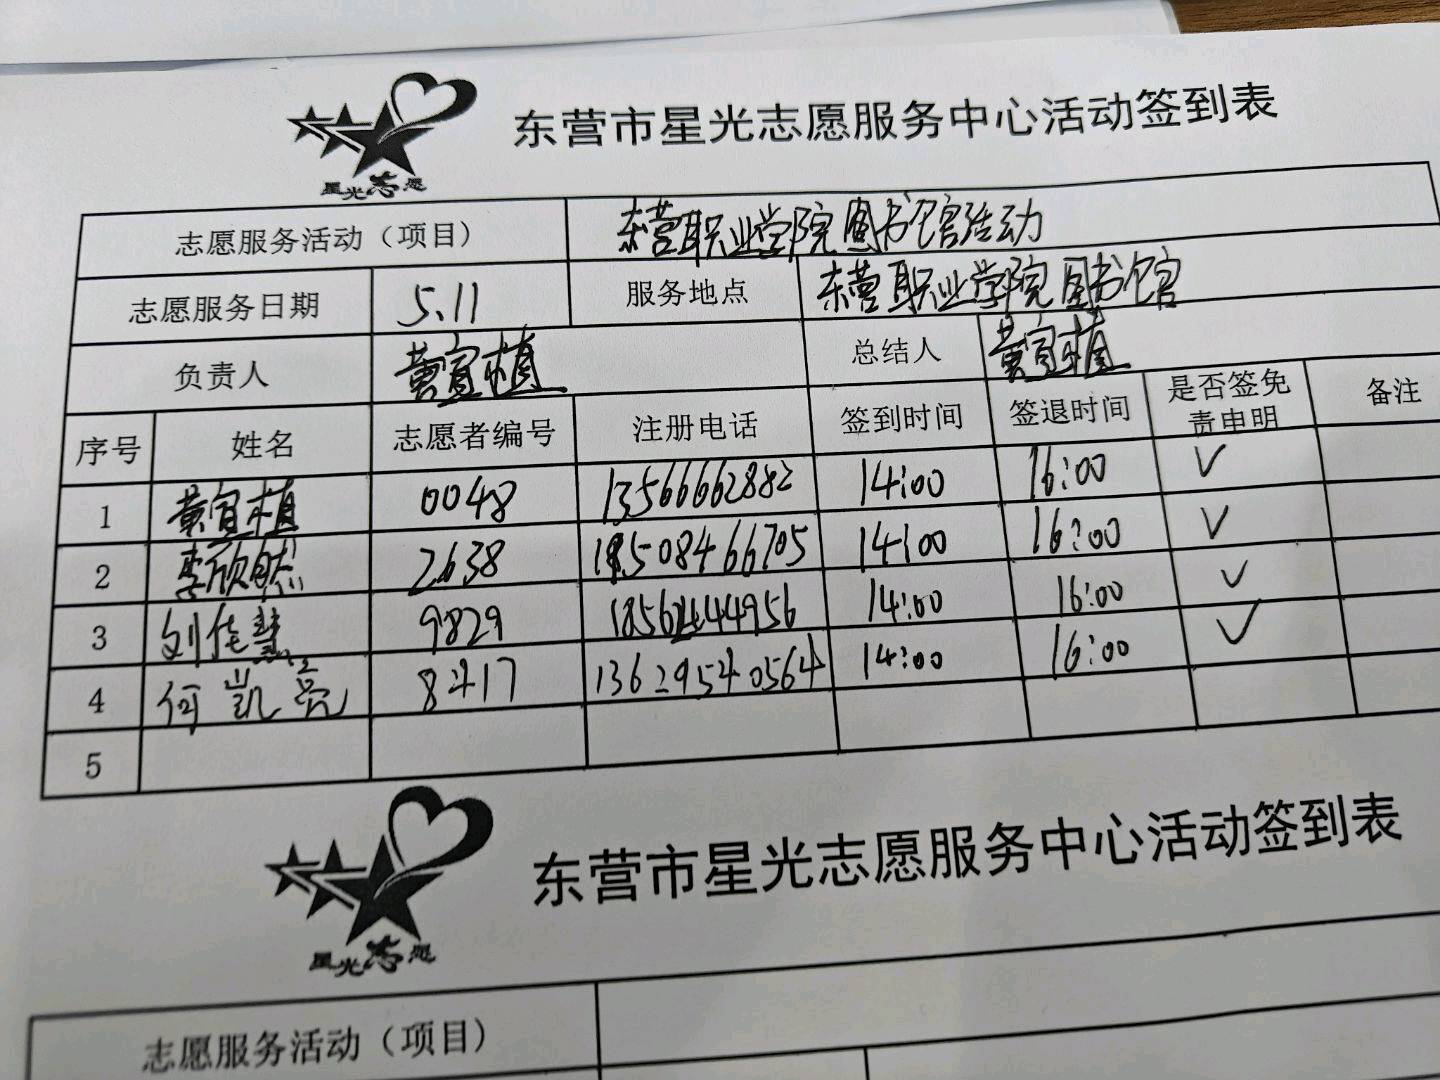 东营市星光志愿服务中心活动签到表
星光志愿
志愿服务活动（项目） 东营职业学院图书馆活动
志愿服务日期 5.11 服务地点 东营职业学院图书馆
负责人 黄宜植 总结人 黄宜植
序号 姓名 志愿者编号 注册电话 签到时间 签退时间 是否签免责申明 备注
1 黄宜植 0048 13566662882 14:00 16:00 ✓
2 李欣然 2638 18508466705 14:00 16:00 ✓
3 刘佳慧 9829 14:00 16:00 ✓
4 何凯亮 8417 13629540564 14:00 16:00 ✓
5
东营市星光志愿服务中心活动签到表
星光志愿
志愿服务活动（项目）